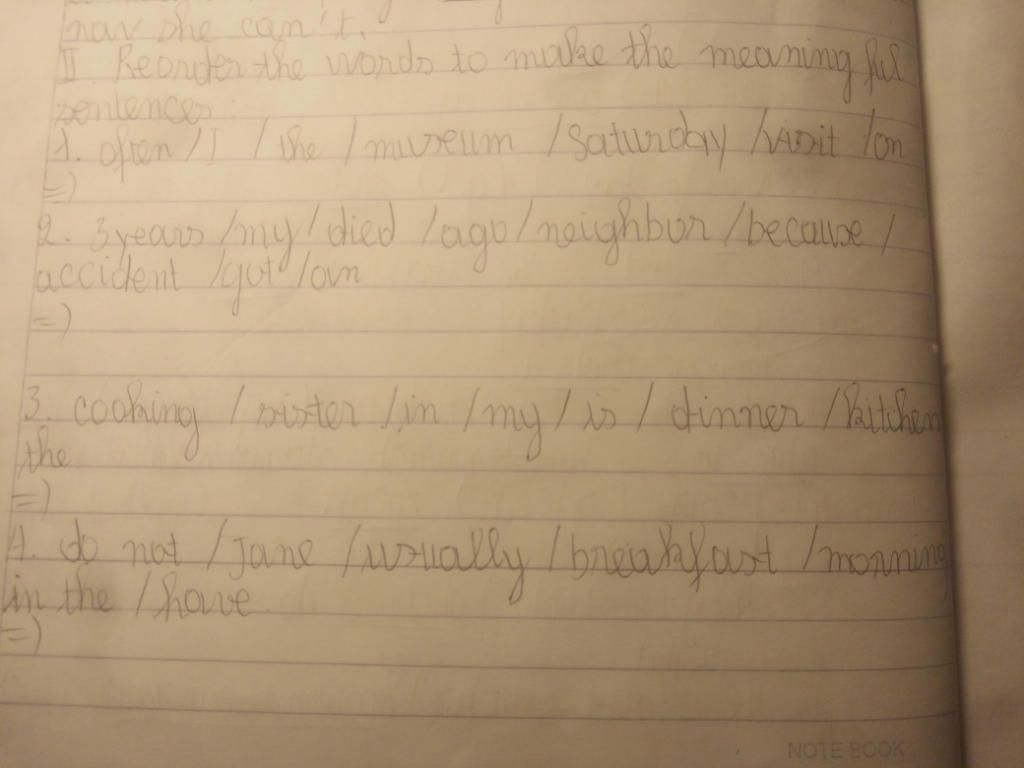 now she can't.
II Reorder the words to make the meaning ful
sentences:
1. often / I / the / museum / Saturday / visit / on
=)
2. 3 years / my / died / ago / neighbor / because /
accident / got / an
=)
3. cooking / sister / in / my / is / dinner / kitchen
the
=)
4. do not / Jane / usually / breakfast / morning
in the / have
=)
NOTE BOOK